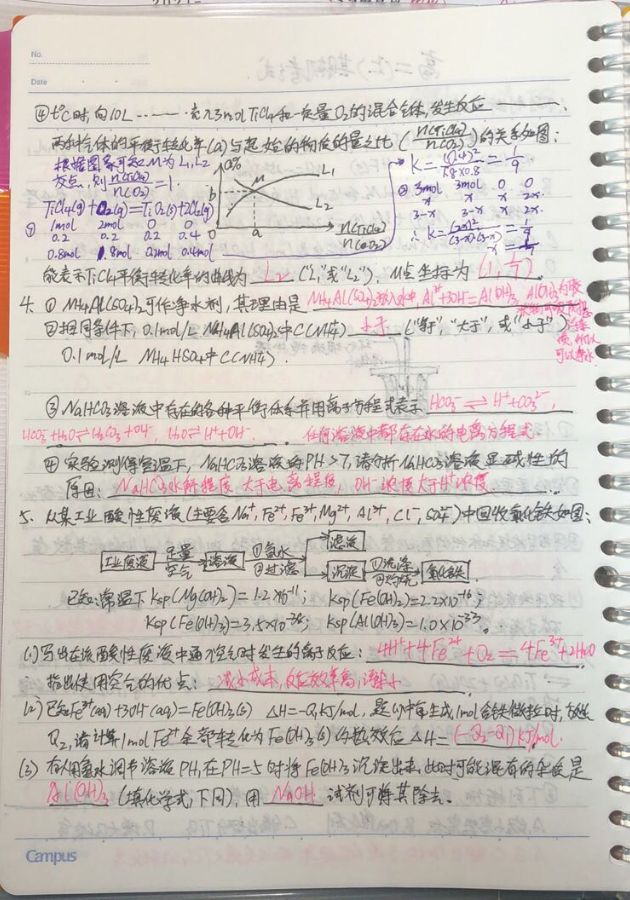 No.
Date
④t°C时,向10L……充入3mol TiCl4和一定量O2的混合气体,发生反应
两种气体的平衡转化率(a)与起始的物质的量之比(n(TiCl4)/n(O2))的关系如图:
根据图象可知M为L1,L2
交点,则n(TiCl4)/n(O2)=1.
TiCl4(g)+O2(g)=TiO2(s)+2Cl2(g)
① 1mol 2mol 0 0
0.2 0.2 0.2 0.4
0.8mol 1.8mol 0.2mol 0.4mol
a%
L1
M
b
L2
0
a
n(TiCl4)/n(O2)
K=(0.4)²/0.8×0.8=1/9
② 3mol 3mol 0 0
x x x 2x
3-x 3-x x 2x
∴K=(2x)²/(3-x)(3-x)=1/9
能表示TiCl4平衡转化率的曲线为 L2 ("L1"或"L2"),M点坐标为(1,1/7)
4. ① NH4Al(SO4)2可作净水剂,其理由是 NH4Al(SO4)2溶入水中,Al3++3OH-=Al(OH)3,Al(OH)3
可以净水.
②相同条件下,0.1mol/L NH4Al(SO4)2中C(NH4+) 小于 ("等于""大于"或"小于")
0.1mol/L NH4HSO4中C(NH4+).
③NaHCO3溶液中存在的各种平衡体系并用离子方程式表示 HCO3-⇌H++CO3²-,
HCO3-+H2O⇌H2CO3+OH-, H2O⇌H++OH-. 任何溶液中都存在水的电离方程式.
④实验测得室温下,NaHCO3溶液的PH>7,请分析NaHCO3溶液显碱性的
原因: NaHCO3水解程度大于电离程度,OH-浓度大于H+浓度
5. 从某工业酸性废液(主要含Na+,Fe2+,Fe3+,Mg2+,Al3+,Cl-,SO4²-)中回收氧化铁如图:
工业废液 足量 空气 溶液 ①氨水 ②过滤 滤液
沉淀 ①洗涤 ②灼烧 氧化铁
已知:常温下Ksp(Mg(OH)2)=1.2×10-11; Ksp(Fe(OH)2)=2.2×10-16;
Ksp(Fe(OH)3)=3.5×10-38; Ksp(Al(OH)3)=1.0×10-33.
(1)写出在该酸性废液中通入空气时发生的离子反应: 4H++4Fe2++O2=4Fe3++2H2O
指出使用空气的优点: 减小成本,反应效率高,
(2)已知Fe3+(aq)+3OH-(aq)=Fe(OH)3(s) ΔH=-Q1KJ/mol,是(1)中每生成1mol含铁微粒时,放出
Q2,请计算1molFe2+全部转化为Fe(OH)3(s)的热效应ΔH=(-Q2-Q1)KJ/mol.
(3)在用氨水调节溶液PH,在PH=5时将Fe(OH)3沉淀出来,此时可能混有的杂质是
Al(OH)3 (填化学式,下同),用 NaOH 试剂可将其除去.
Campus